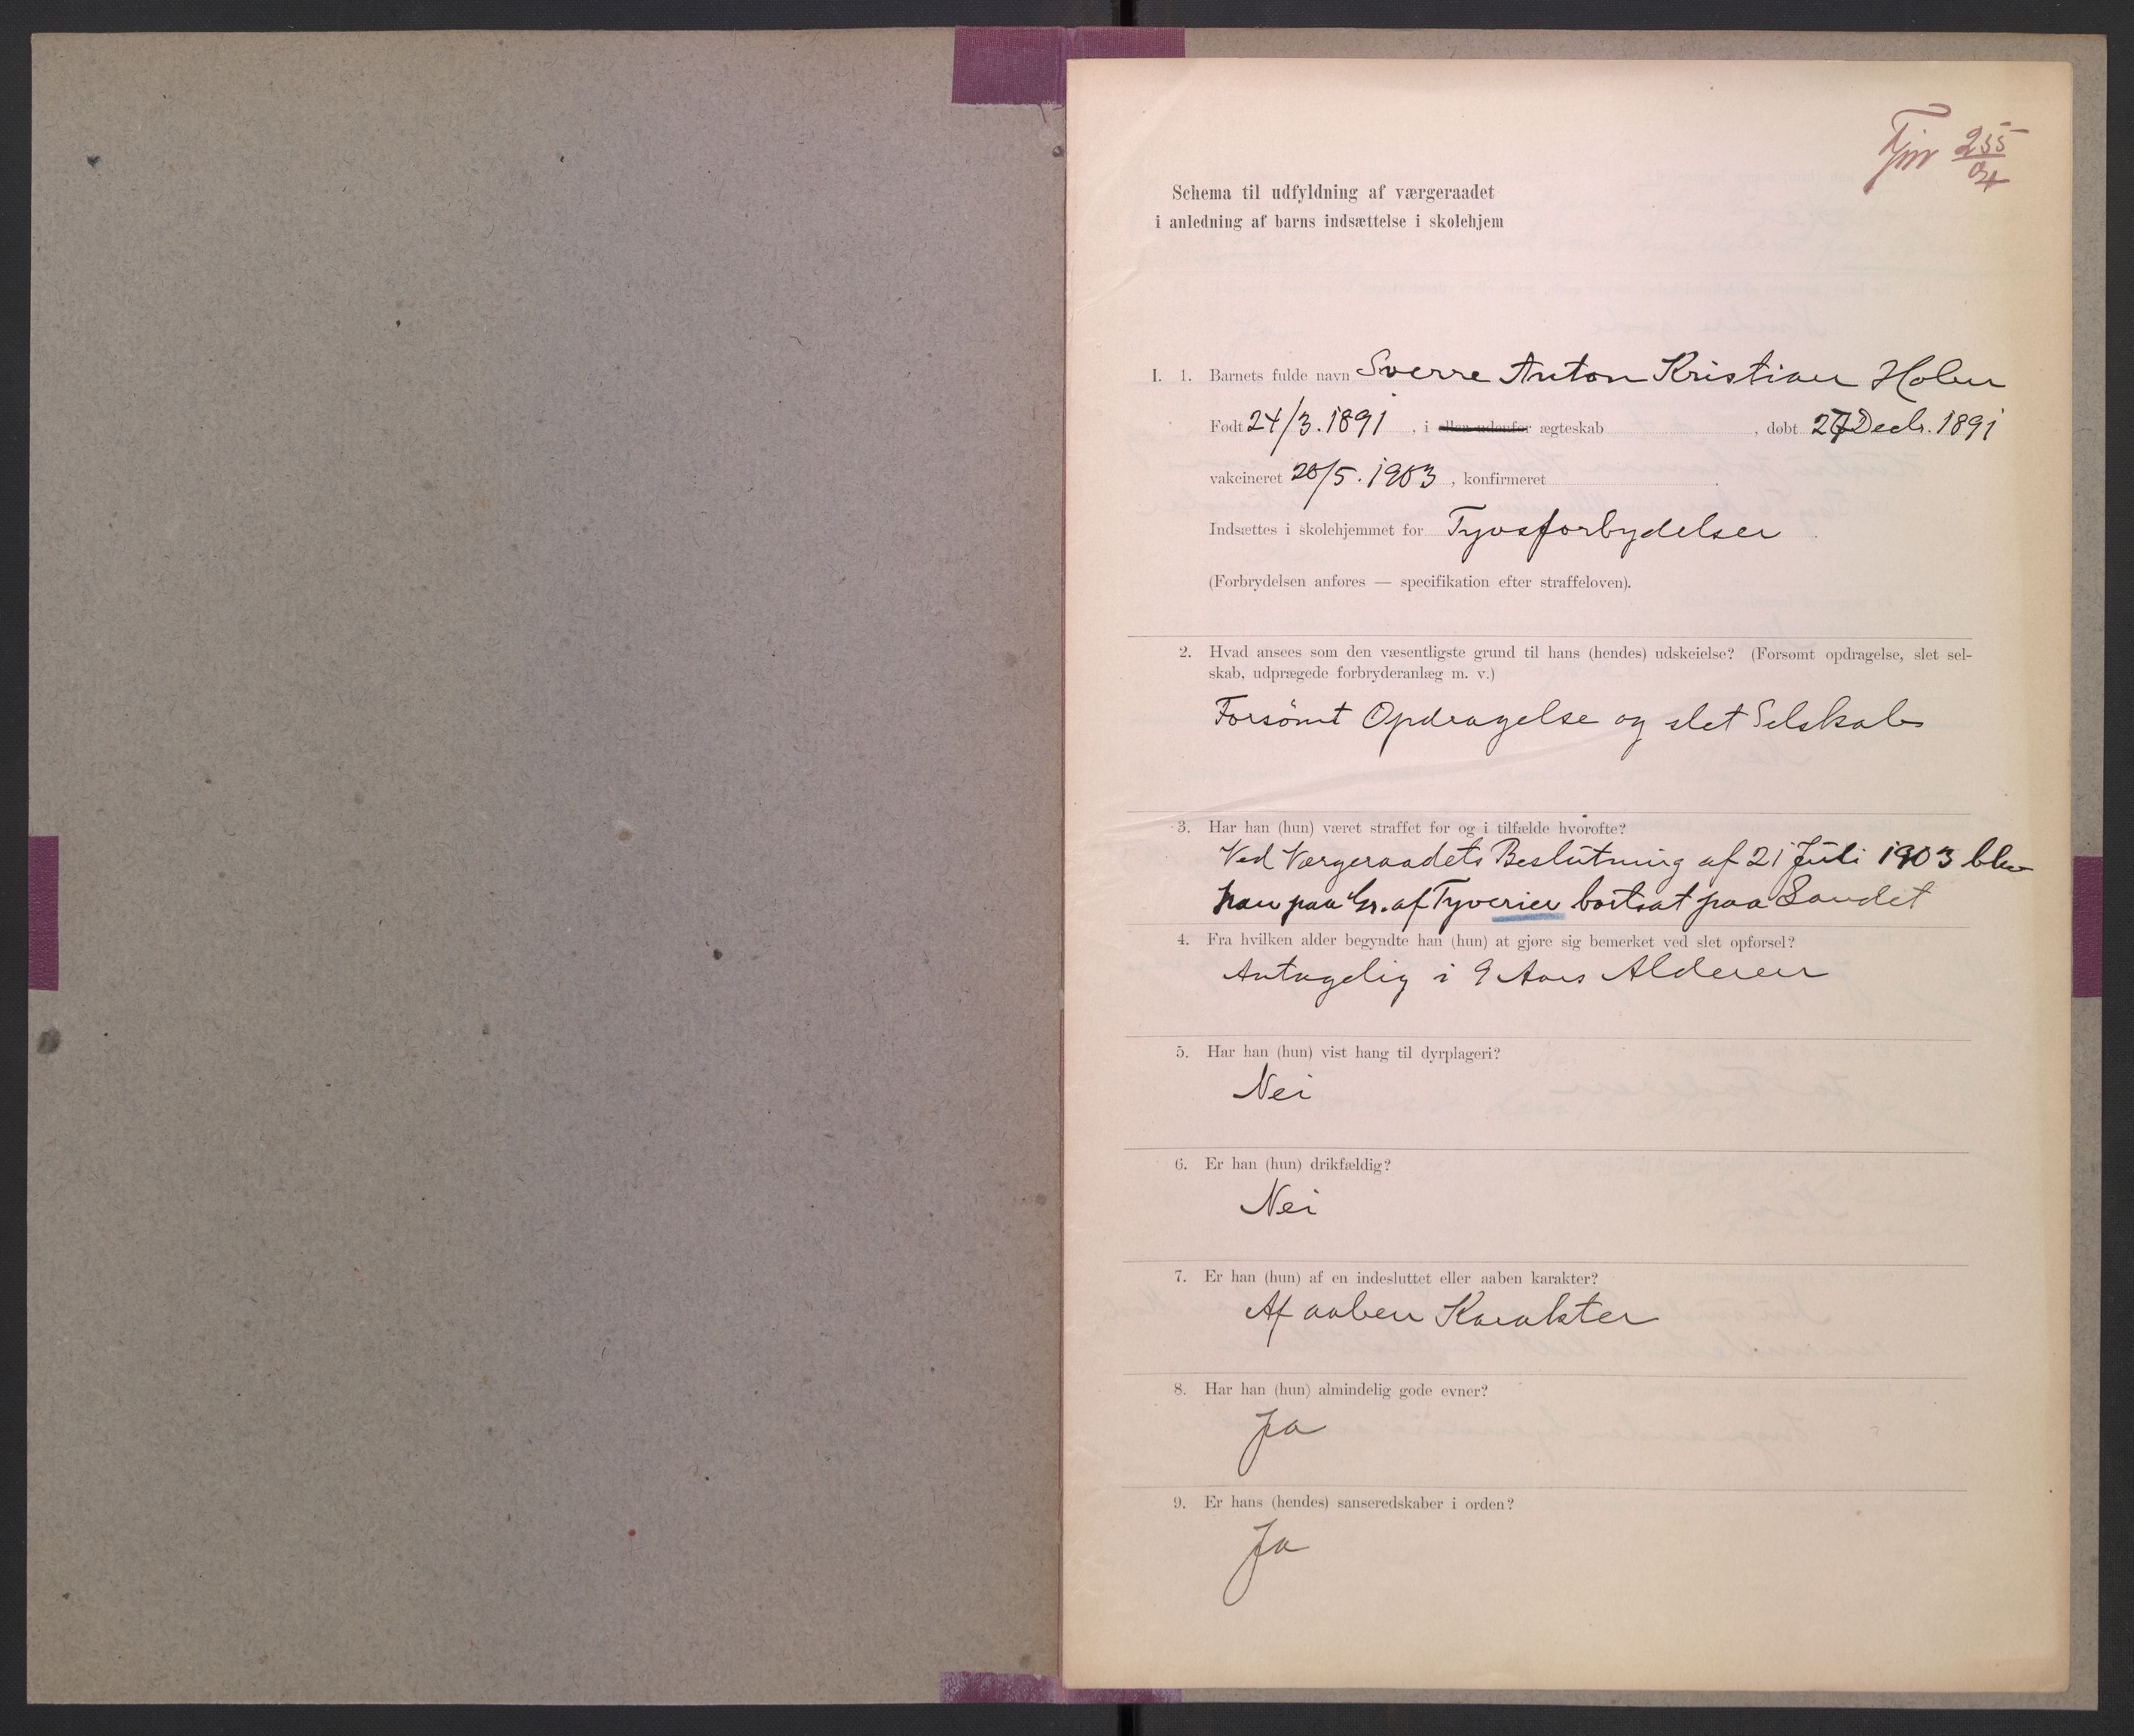 255
04
Schema til udfyldning af værgeraadet
i anledning af barns indsættelse i skolehjem
I. 1. Barnets fulde navn Sverre Anton Kristian Holm
Født 24/3. 1891, i eller udenfor ægteskab, døbt 27 Decb. 1891
vakcineret 20/5. 1903, konfirmeret
Indsættes i skolehjemmet for Tyvsforbydelser
(Forbrydelsen anføres — specifikation efter straffeloven).
2. Hvad ansees som den væsentligste grund til hans (hendes) udskeielse? (Forsømt opdragelse, slet sel-
skab, udprægede forbryderanlæg m. v.)
Forsømt Opdragelse og slet Selskab
3. Har han (hun) været straffet før og i tilfælde hvorofte?
Ved Værgeraadets Beslutning af 21 Juli 1903 blev
han paa Gr. af Tyverier bortsat paa Landet
4. Fra hvilken alder begyndte han (hun) at gjøre sig bemerket ved slet opførsel?
Antagelig i 9 Aars Alderen
5. Har han (hun) vist hang til dyrplageri?
Nei
6. Er han (hun) drikfældig?
Nei
7. Er han (hun) af en indesluttet eller aaben karakter?
Af aaben Karakter
8. Har han (hun) almindelig gode evner?
Ja
9. Er hans (hendes) sanseredskaber i orden?
Ja